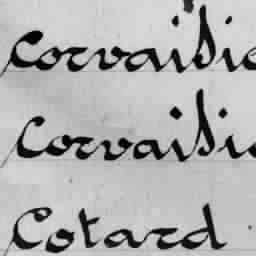 Corvaisie
Corvaisie
Cotard